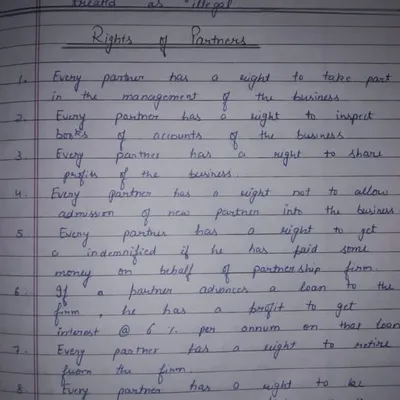 treated as "illegal
Rights of Partners
1. Every partner has a right to take part
in the management of the business
2. Every partner has a right to inspect
books of accounts of the business
3. Every partner has a right to share
profits of the business.
4. Every partner has a right not to allow
admission of new partner into the business
5. Every partner has a right to get
a indemnified if he has paid some
money on behalf of partnership firm.
6. If a partner advances a loan to the
firm, he has a profit to get
interest @ 6 % per annum on that loan
7. Every partner has a right to retire
from the firm.
8. Every partner has a right to be